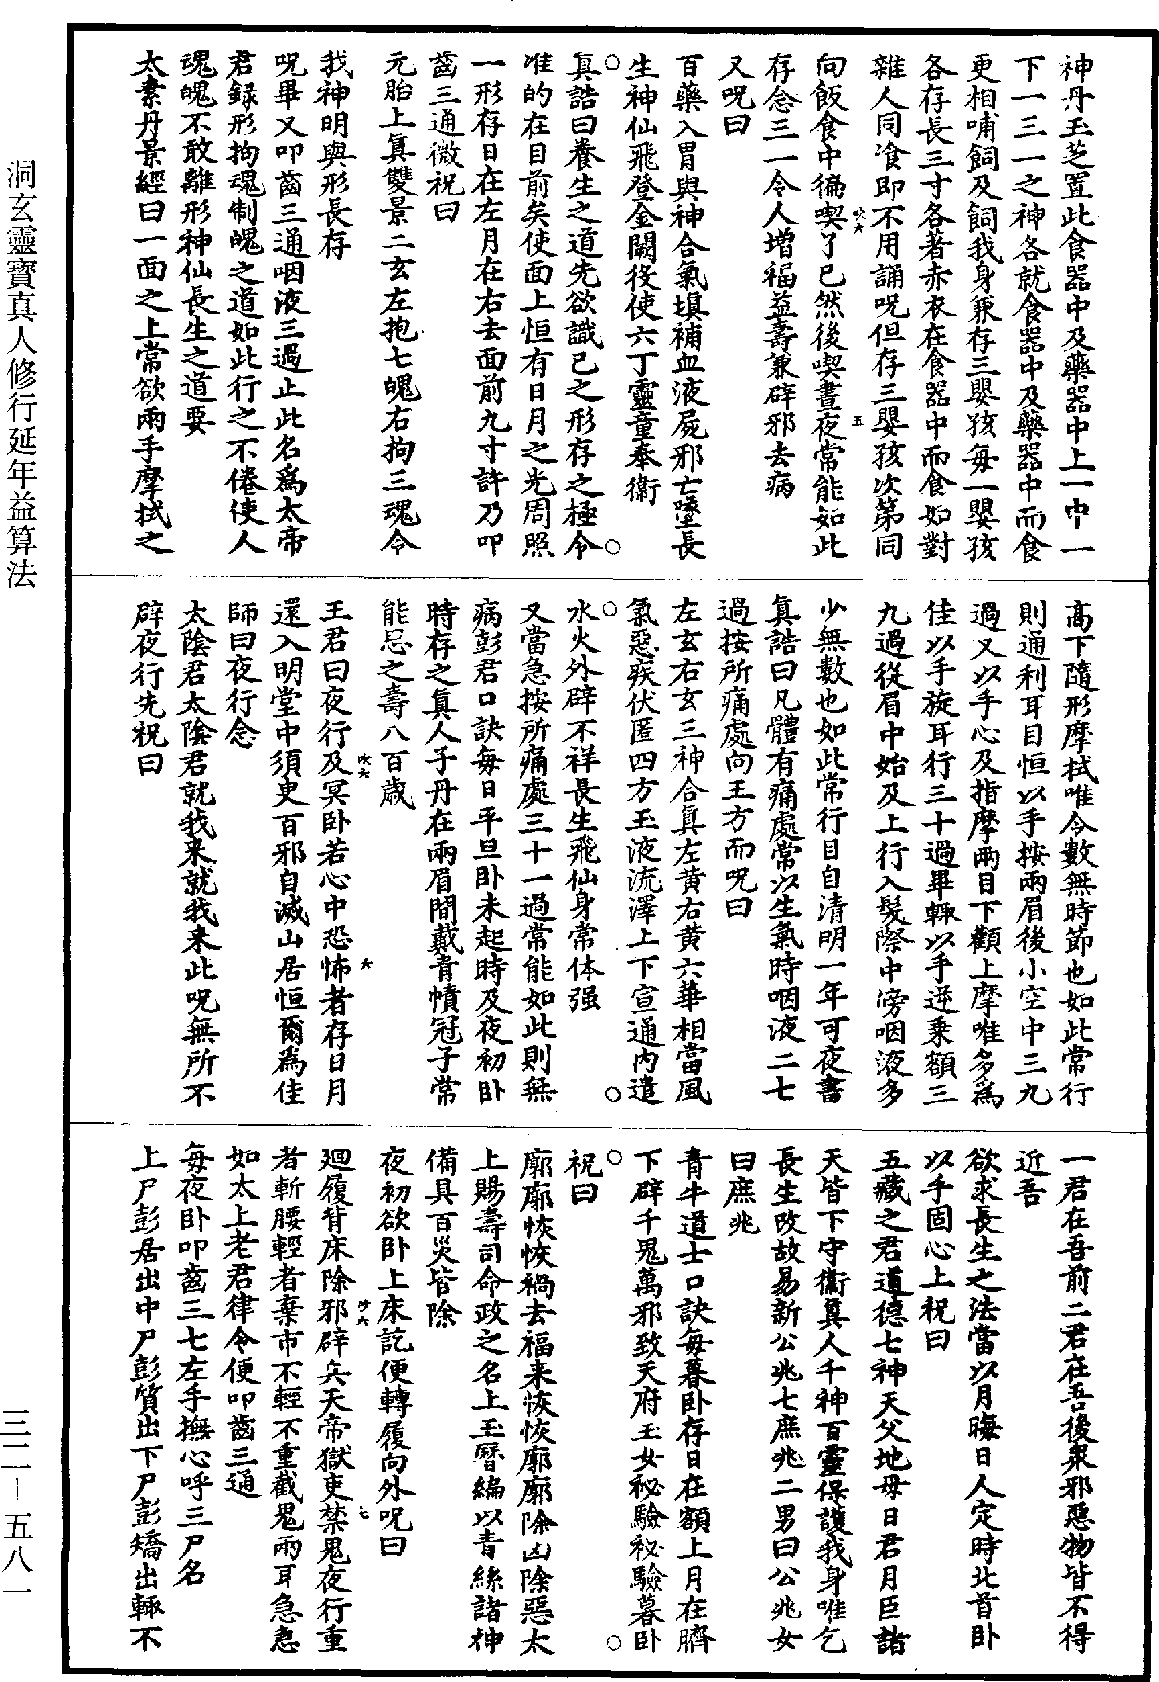 神丹玉芝置此食器中及藥器中上一中一
下一三一之神各就食器中及藥器中而食
更相哺飼及飼我身兼存三嬰孩每一嬰孩
各存長三寸各著赤衣在食器中而食如對
雜人同飡即不用誦呪但存三嬰孩次第同
向飯食中徧喫了已然後喫晝夜常能如此
存念三一令人增福益壽兼辟邪去病
又呪曰
百藥入胃與神合氣塡補血液屍邪亡墜長
生神仙飛登金闕役使六丁靈童奉衛
真誥曰養生之道先欲識己之形存之極令
准的在目前矣使面上恒有日月之光周照
一形存日在左月在右去面前九寸許乃叩
齒三通微祝曰
元胎上真雙景二玄左抱七魄右拘三魂令
我神明與形長存
呪畢又叩齒三通咽液三過止此名爲太帝
君録形拘魂制魄之道如此行之不倦使人
魂魄不敢離形神仙長生之道要
太素丹景經曰一面之上常欲兩手摩拭之
高下隨形摩拭唯令數無時節也如此常行
則通利耳目恒以手按兩眉後小空中三九
過又以手心及指摩兩目下顴上摩唯多爲
佳以手旋耳行三十過畢輒以手逆乗額三
九過從眉中始及上行入髮際中旁咽液多
少無數也如此常行目自清明一年可夜書
真誥曰凡體有痛處常以生氣時咽液二七
過按所痛處向王方而呪曰
左玄右玄三神合真左黄右黄六華相當風
氣惡疾伏匿四方玉液流澤上下宣通内遣
水火外辟不祥長生飛仙身常体强
又當急按所痛處三十一過常能如此則無
病彭君口訣每日平旦卧未起時及夜初卧
時存之真人子丹在兩眉間戴青幘冠子常
能忌之壽八百歲
王君曰夜行及冥卧若心中恐怖者存日月
還入明堂中須臾百邪自滅山居恒爾爲佳
師曰夜行念
太陰君太陰君就我来就我来此呪無所不
辟夜行先祝曰
一君在吾前二君在吾後衆邪惡物皆不得
近吾
欲求長生之法當以月晦日人定時北首卧
以手固心上祝曰
五藏之君道德七神天父地母日君月臣諸
天皆下守衞真人千神百靈保護我身唯乞
長生改故易新公兆七庶兆二男曰公兆女
曰庶兆
青牛道士口訣每暮卧存日在額上月在臍
下辟千鬼萬邪致天府玉女秘驗秘驗暮卧
祝曰
廓廓恢恢禍去福来恢恢廓廓除凶除惡太
上賜壽司命政之名上玉曆編以青絲諸神
備具百災皆除
夜初欲卧上床訖便轉履向外呪曰
廻履背床除邪辟兵天帝獄吏禁鬼夜行重
者斬腰輕者棄市不輕不重截鬼兩耳急急
如太上老君律令便叩齒三通
每夜卧叩齒三七左手撫心呼三尸名
上尸彭居出中尸彭質出下尸彭矯出輒不
洞玄靈寶真人修行延年益算法
三二－五八一